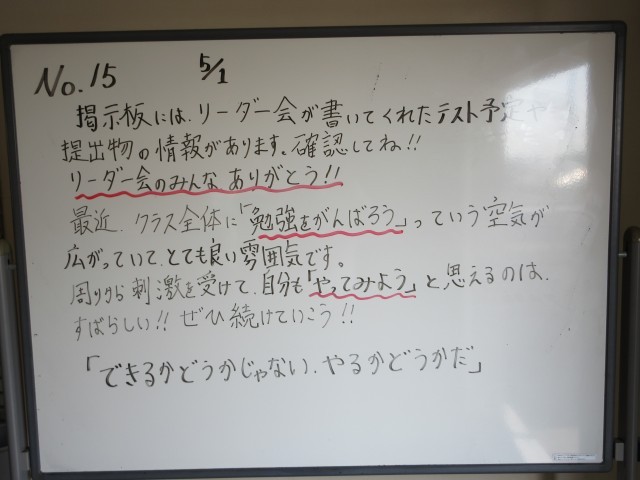 No.15 5/1
掲示板には、リーダー会が書いてくれたテスト予定や
提出物の情報があります。確認してね!!
リーダー会のみんな ありがとう!!
最近、クラス全体に「勉強をがんばろう」っていう空気が
広がっていて、とても良い雰囲気です。
周りから刺激を受けて、自分も「やってみよう」と思えるのは、
すばらしい!! ぜひ続けていこう!!
「できるかどうかじゃない、やるかどうかだ」